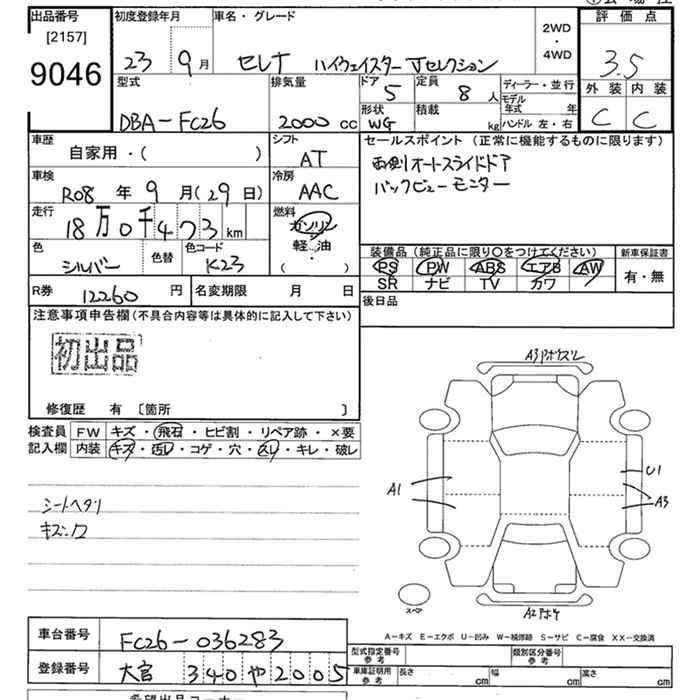 出品番号
[2157]
9046
初度登録年月
23 9月
車名・グレード
セレナ ハイウェイスター Jセレクション
2WD
・
4WD
評価点
3.5
外装 内装
C C
型式
DBA-FC26
排気量
2000 cc
ドア
5
定員
8 人
ディーラー・並行
モデル年式 年
ハンドル 左・右
形状
WG
積載
kg
車歴
自家用・( )
シフト
AT
セールスポイント (正常に機能するものに限ります)
両側オートスライドドア
バックビューモニター
車検
R08 年 9 月(29 日)
冷房
AAC
走行
18万0千473km
燃料
ガソリン
軽油
( )
色
シルバー
色替
色コード
K23
装備品(純正品に限り○をつけてください)
PS PW ABS エアB AW
SR ナビ TV カワ
新車保証書
有・無
R券 12260 円
名変期限 月 日
後日品
注意事項申告欄(不具合内容等は具体的に記入して下さい)
初出品
修復歴 有 〔箇所 〕
検査員記入欄
FW キズ・飛石・ヒビ割・リペア跡・×要
内装 キズ・汚レ・コゲ・穴・スレ・キレ・破レ
シートヘタリ
A3
U1
A1
A3
スペア
A2
A-キズ E-エクボ U-凹み W-補修跡 S-サビ C-腐食 XX-交換済
車台番号 FC26-036283
登録番号 大宮 340 や 2005
型式指定番号 参考
類別区分番号 参考
車庫証明用 参考
長さ cm 幅 cm 高さ cm